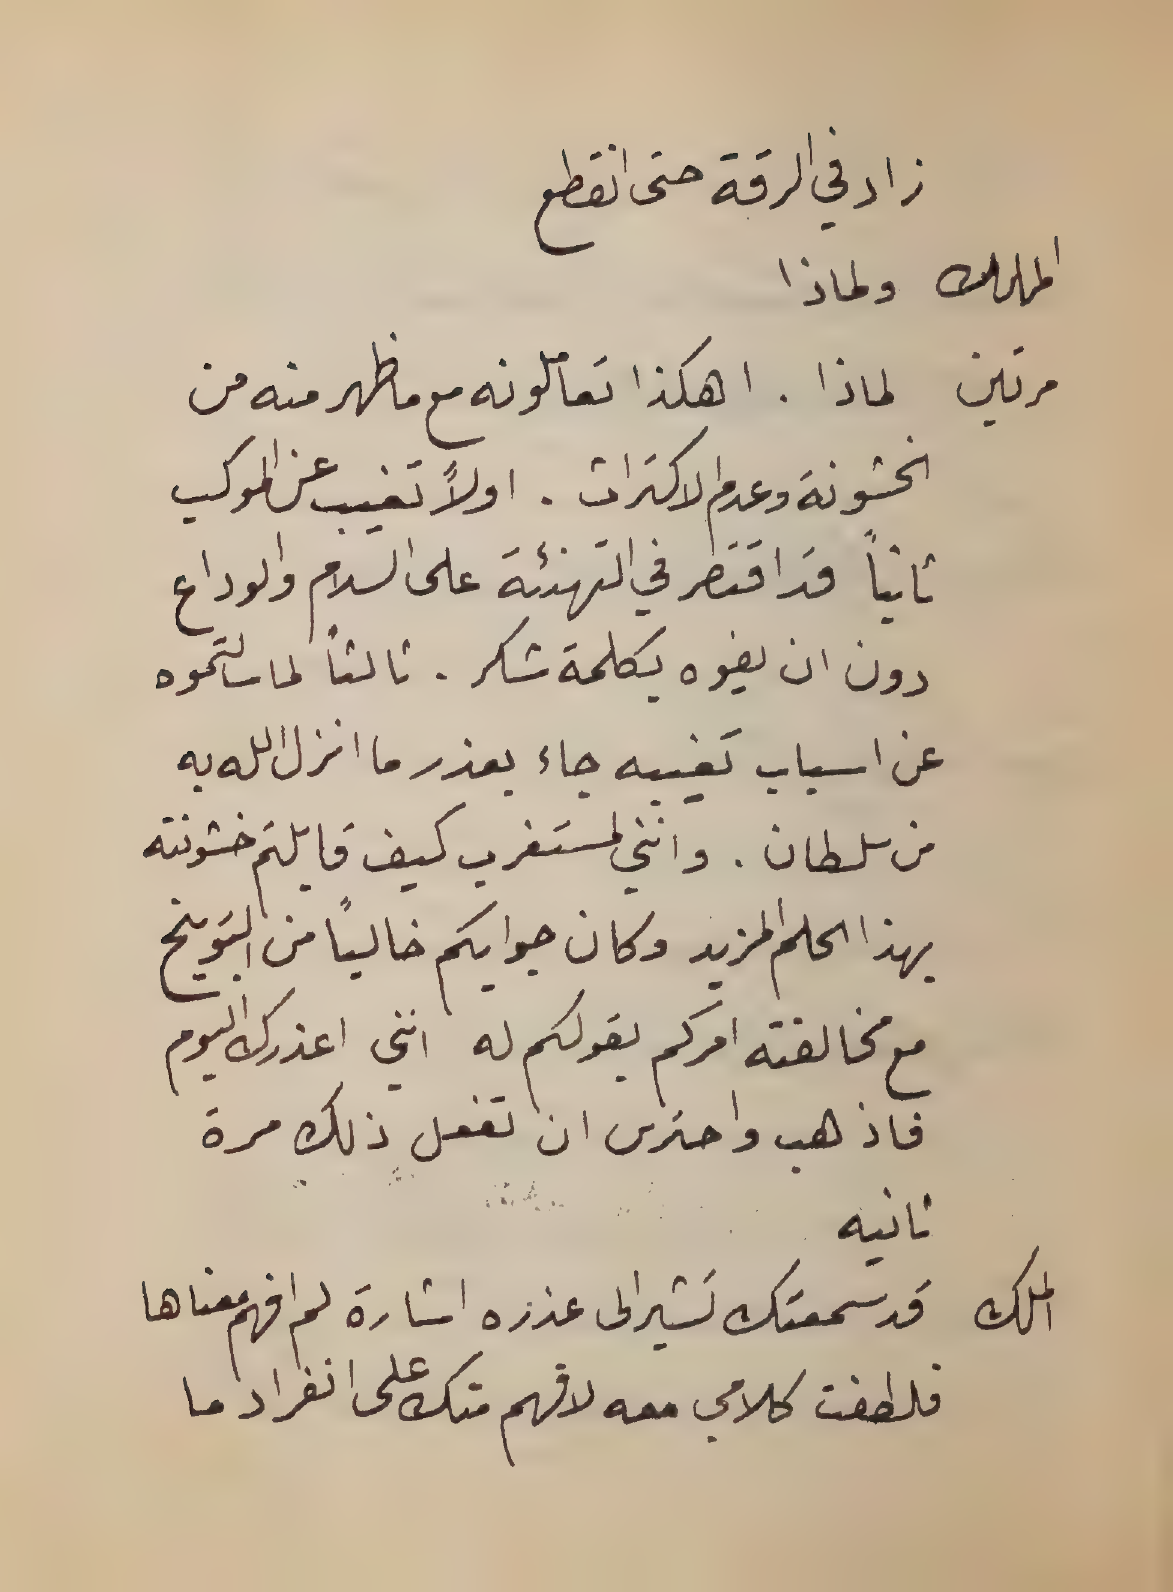 زاد في الرقة حتى انقطع
الملك ولماذا
مرتين لماذا . اهكذا تعاملونه مع ما ظهر منه من
الخشونة وعدم الاكتراث . اولاً تغيب عن الموكب
ثانياً قد اقتصر في التهنئة على السلام والوداع
دون ان يفوه بكلمة شكر . ثالثاً لما سالتموه
عن اسباب تغيبه جاء بعذر ما انزل الله به
من سلطان . وانني لمستغرب كيف قابلتم خشونته
بهذا الحلم المزيد وكان جوابكم خالياً من التوبيخ
مع مخالفته امركم بقولكم له انني اعذرك اليوم
فاذهب واحترس ان تفعل ذلك مرة
ثانيه
الملك قد سمعتك تشير الى عذره اشارة لم افهم معناها
فلطفت كلامي معه لافهم منك على انفراد ما